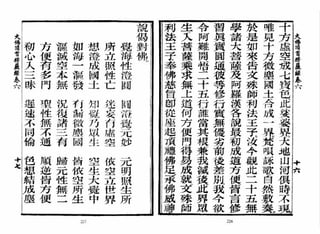 十方虛空成七寶色此娑婆界大地山河俱時不現
唯見十方微塵國土合成一界梵唄詠歌自然敷奏
於是如來告文殊師利法王子汝今觀此二十五無
學諸大菩薩及阿羅漢各說最初成道方便皆言修
習真實圓通彼等修行實無優劣前後差別我今欲
令阿難開悟二十五行誰當其根兼我滅後此界眾
生入菩薩乘求無上道何方便門得易成就文殊師
利法王子奉佛慈旨即從座起頂禮佛足承佛威神
十六
226
說偈對佛
覺海性澄圓 圓澄覺元妙 元明照生所
所立照性亡 迷妄有虛空 依空立世界
想澄成國土 知覺乃眾生 空生大覺中
如海一漚發 有漏微塵國 皆依空所生
漚滅空本無 況復諸三有 歸元性無二
方便有多門 聖性無不通 順逆皆方便
初心入三昧 遲速不同倫 色想結成塵
十七
227